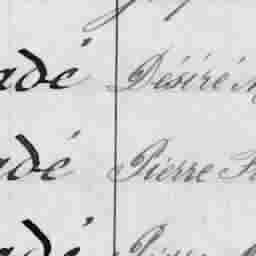 adé Désiré
adé Pierre
adé Pierre